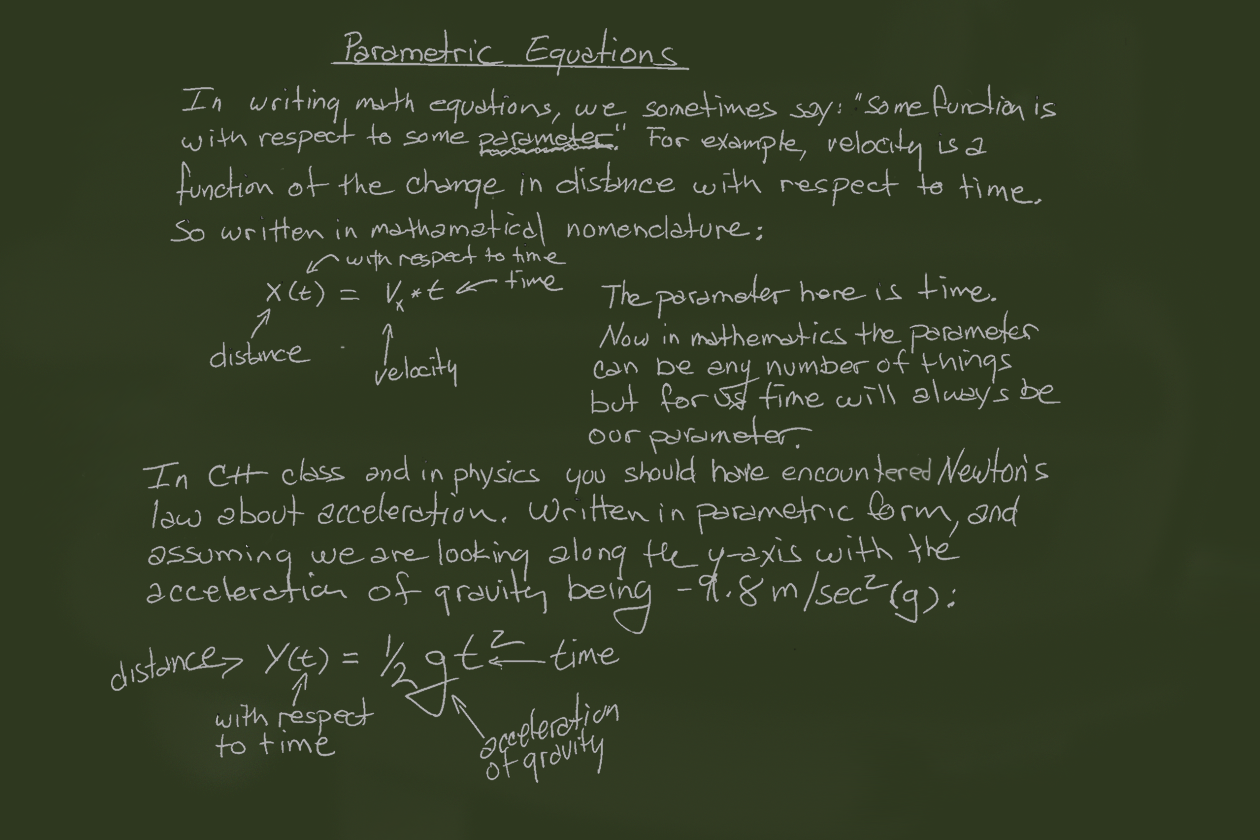 Parametric Equations
In writing math equations, we sometimes say: "Some function is
with respect to some parameter." For example, velocity is a
function of the change in distance with respect to time.
So written in mathamatical nomenclature:
with respect to time
X(t) = Vx * t ← time
distance
velocity
The parameter here is time.
Now in mathematics the parameter
can be any number of things
but for us time will always be
our parameter.
In C++ class and in physics you should have encountered Newton's
law about acceleration. Written in parametric form, and
assuming we are looking along the y-axis with the
acceleration of gravity being -9.8 m/sec² (g):
distance → Y(t) = 1/2 g t² ← time
with respect
to time
acceleration
of gravity